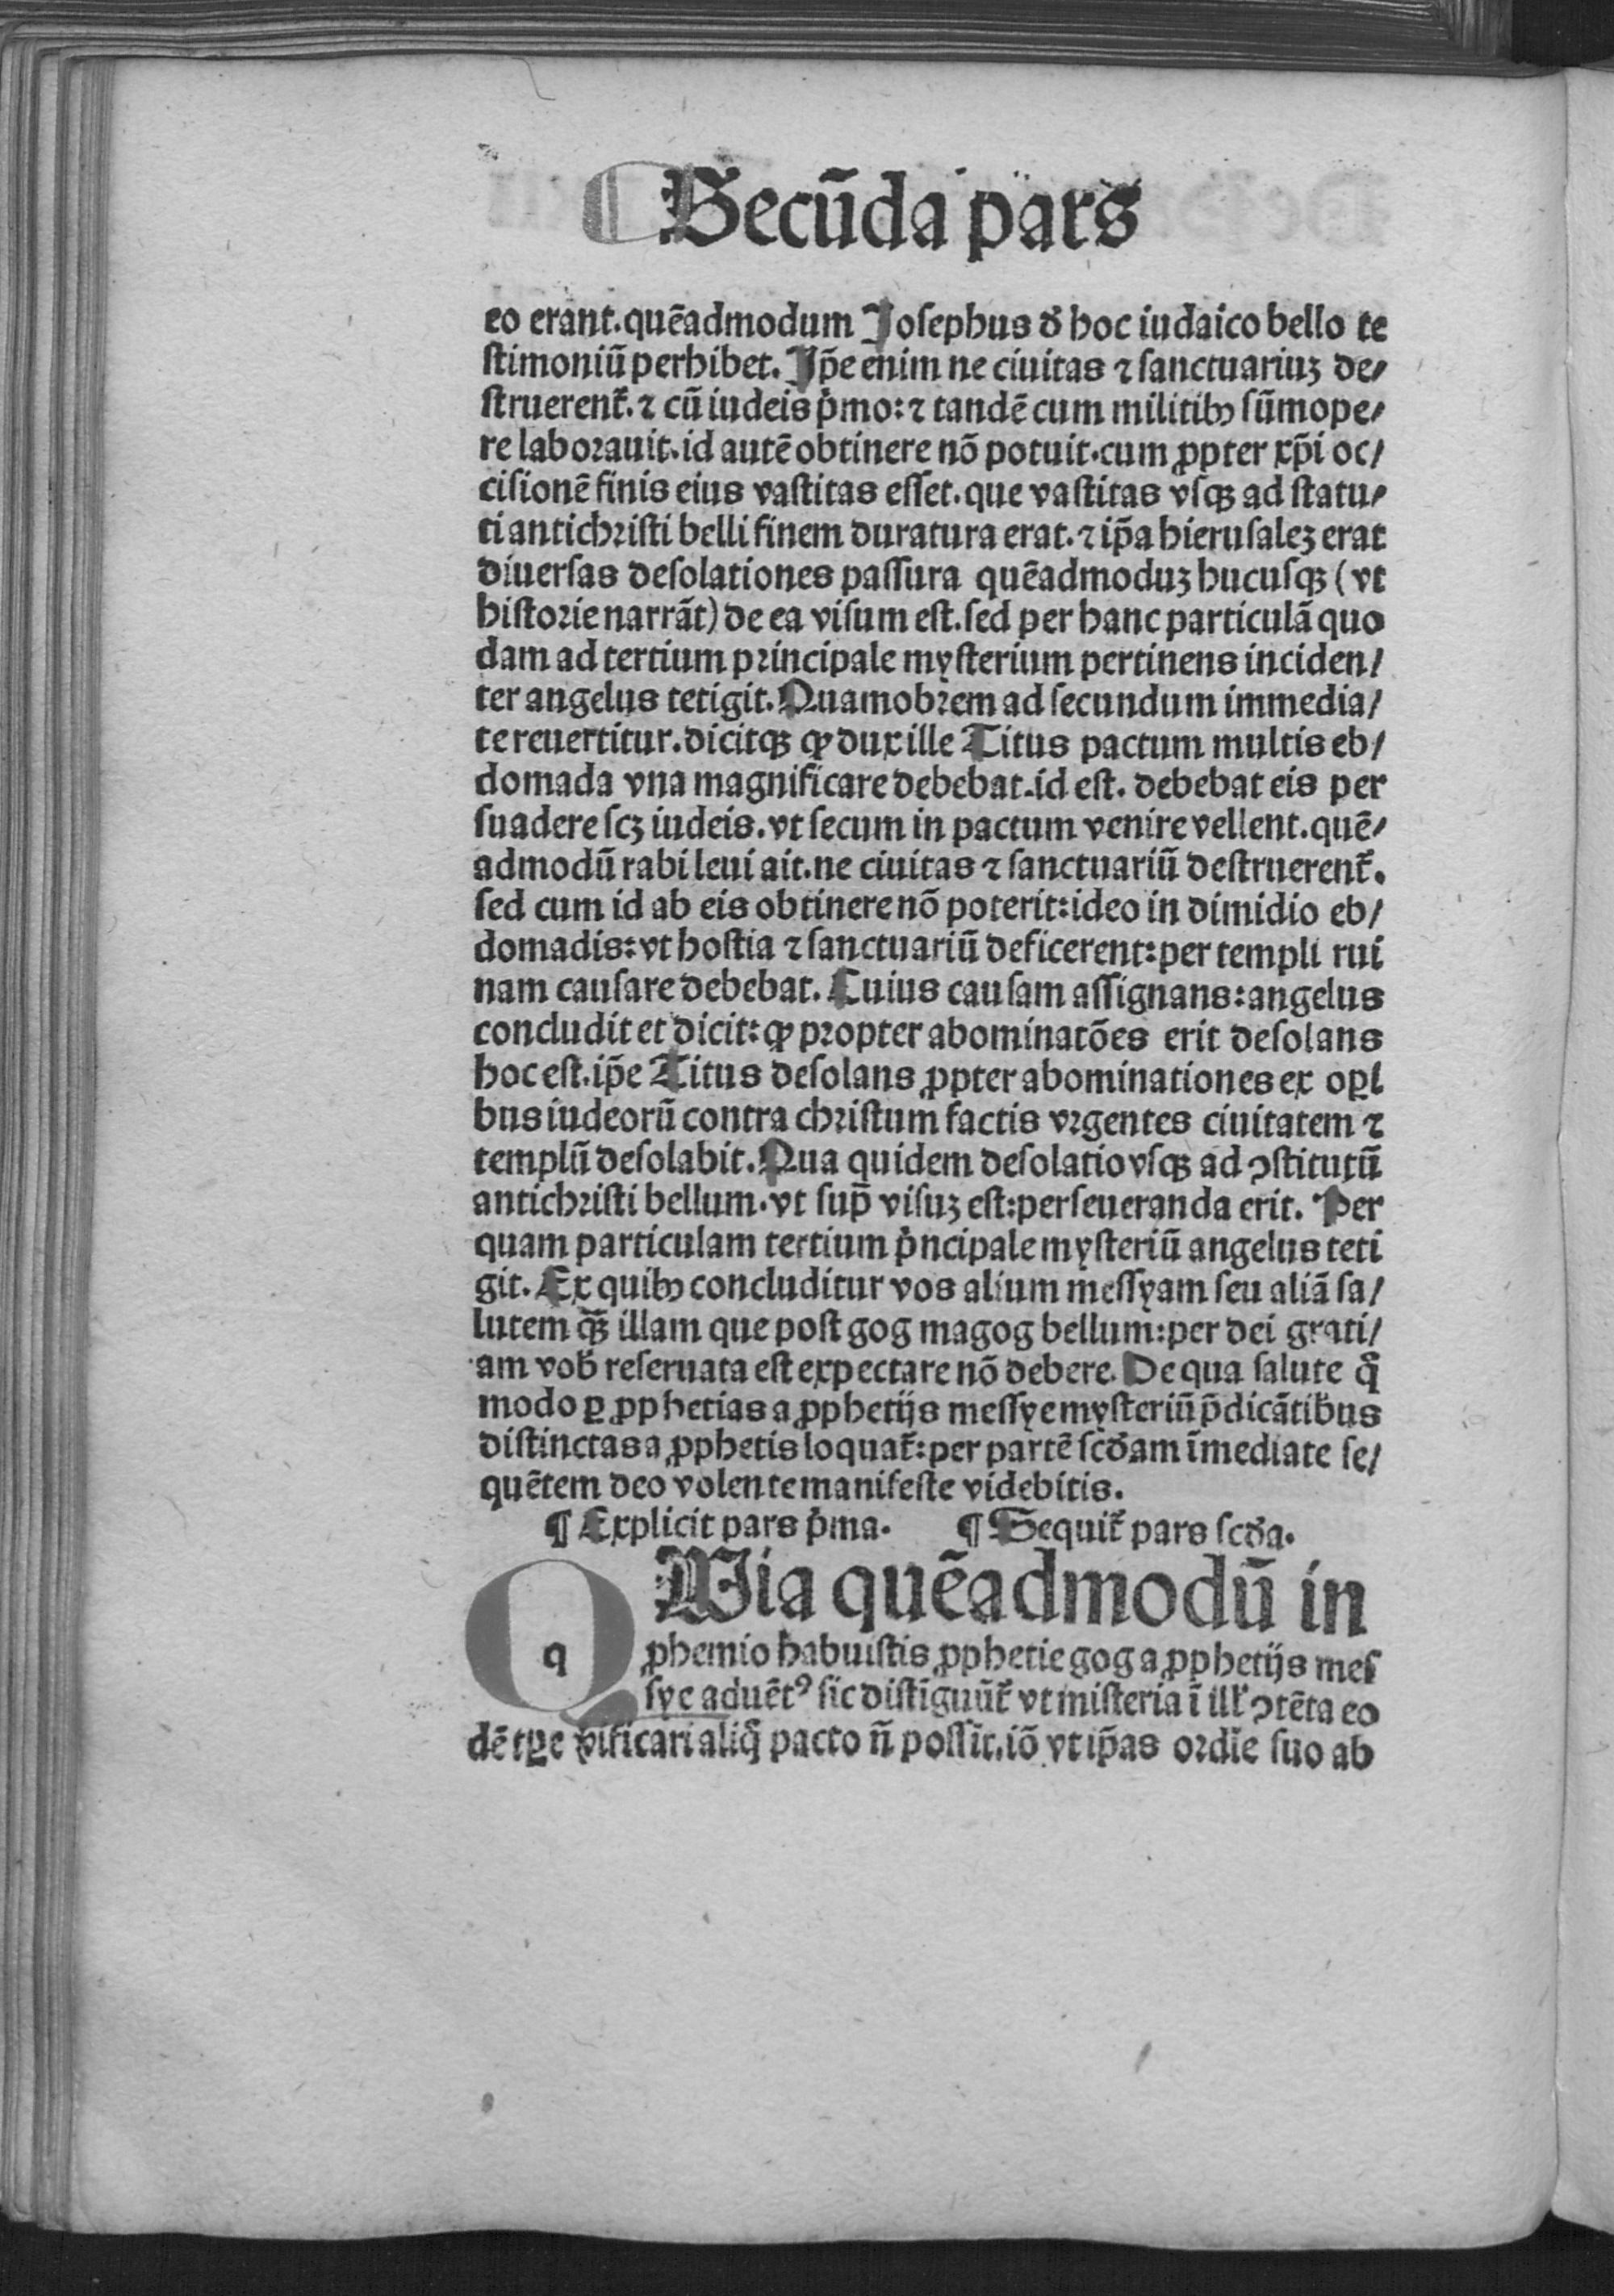 Secūda pars
eo erant. quēadmodum Josephus ð hoc iudaico bello te
stimoniū perhibet. Jp̄e enim ne ciuitas ⁊ sanctuariuꝫ de/
struerent̃. ⁊ cū iudeis p̊mo: ⁊ tandē cum militibꝰ sūmope/
re laborauit. id autē obtinere nō potuit. cum ꝓpter xp̄i oc/
cisionē finis eius vastitas esset. que vastitas vsqꝫ ad statu/
ti antichristi belli finem duratura erat. ⁊ ip̄a hierusaleꝫ erat
diuersas desolationes passura quēadmoduꝫ hucusqꝫ (vt
historie narrāt) de ea visum est. sed per hanc particulā quo
dam ad tertium principale mysterium pertinens inciden/
ter angelus tetigit. Quamobrem ad secundum immedia/
te reuertitur. dicitqꝫ ꝙ dux ille Titus pactum multis eb/
domada vna magnificare debebat. id est. debebat eis per
suadere scꝫ iudeis. vt secum in pactum venire vellent. quē/
admodū rabi leui ait. ne ciuitas ⁊ sanctuariū destruerent̃.
sed cum id ab eis obtinere nō poterit: ideo in dimidio eb/
domadis: vt hostia ⁊ sanctuariū deficerent: per templi rui
nam causare debebat. Cuius causam assignans: angelus
concludit et dicit: ꝙ propter abominatōes erit desolans
hoc est. ip̄e Titus desolans ꝓpter abominationes ex oꝑi
bus iudeorū contra christum factis vrgentes ciuitatem ⁊
templū desolabit. Qua quidem desolatio vsqꝫ ad ↄstitutū
antichristi bellum. vt sup̄ visuꝫ est: perseueranda erit. Per
quam particulam tertium p̊ncipale mysteriū angelus teti
git. Ex quibꝰ concluditur vos alium messyam seu aliā sa/
lutem q̄ꝫ illam que post gog magog bellum: per dei grati/
am vob̃ reseruata est expectare nō debere. De qua salute q̊
modo ꝑ ꝓphetias a ꝓphetijs messye mysteriū p̄dicātibus
distinctas a ꝓphetis loquat̃: per partē scðam īmediate se/
quētem deo volente manifeste videbitis.
¶ Explicit pars p̊ma. ¶ Sequit̃ pars scða.
q
QUia quēadmodū in
ꝓhemio habuistis ꝓphetie gog a ꝓphetijs mes
sye aduētꝰ sic distīguūt̃ vt misteria ī ill̃ ↄtēta eo
dē tꝑe v̊ificari aliq̊ pacto n̄ possīt. iō vt ip̄as ordīe suo ab